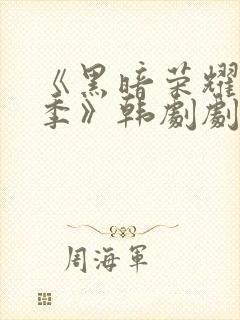 《黑暗荣耀
季》韩剧剧
周海军